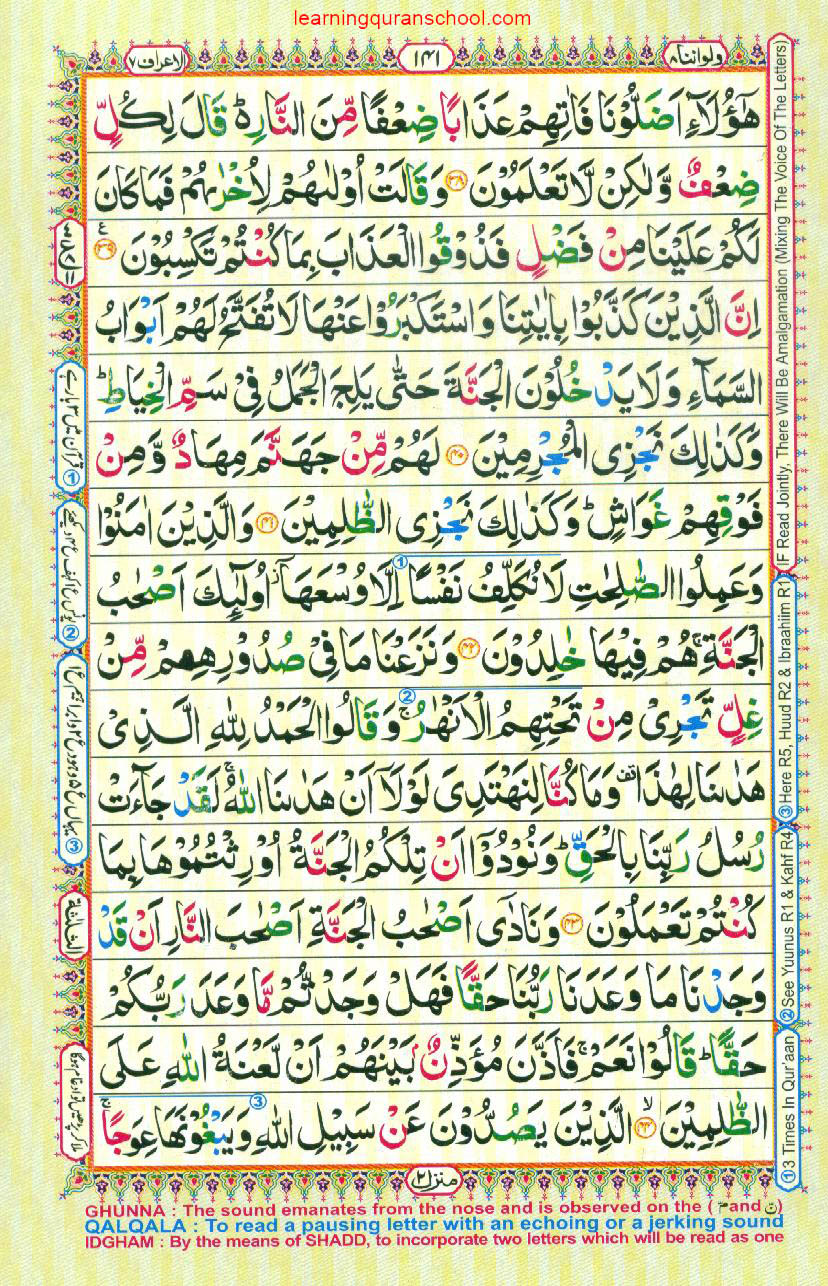 learningquranschool.com
ولواننا ٨
١٤١
الاعراف ٧
هٰۤؤُلَآءِ اَضَلُّوْنَا فَاٰتِهِمْ عَذَابًا ضِعْفًا مِّنَ النَّارِ۬ؕ قَالَ لِكُلٍّ
ضِعْفٌ وَّلٰكِنْ لَّا تَعْلَمُوْنَ ﴿۳۸﴾ وَقَالَتْ اُوْلٰىهُمْ لِاُخْرٰىهُمْ فَمَا كَانَ
لَكُمْ عَلَيْنَا مِنْ فَضْلٍ فَذُوْقُوا الْعَذَابَ بِمَا كُنْتُمْ تَكْسِبُوْنَ ﴿۳۹﴾
اِنَّ الَّذِيْنَ كَذَّبُوْا بِاٰيٰتِنَا وَاسْتَكْبَرُوْا عَنْهَا لَا تُفَتَّحُ لَهُمْ اَبْوَابُ
السَّمَآءِ وَلَا يَدْخُلُوْنَ الْجَنَّةَ حَتّٰى يَلِجَ الْجَمَلُ فِيْ سَمِّ الْخِيَاطِؕ
وَكَذٰلِكَ نَجْزِى الْمُجْرِمِيْنَ ﴿۴۰﴾ لَهُمْ مِّنْ جَهَنَّمَ مِهَادٌ وَّمِنْ
فَوْقِهِمْ غَوَاشٍؕ وَكَذٰلِكَ نَجْزِى الظّٰلِمِيْنَ ﴿۴۱﴾ وَالَّذِيْنَ اٰمَنُوْا
وَعَمِلُوا الصّٰلِحٰتِ لَا نُكَلِّفُ نَفْسًا اِلَّا وُسْعَهَاۤ اُولٰٓئِكَ اَصْحٰبُ
الْجَنَّةِۚ هُمْ فِيْهَا خٰلِدُوْنَ ﴿۴۲﴾ وَنَزَعْنَا مَا فِيْ صُدُوْرِهِمْ مِّنْ
غِلٍّ تَجْرِيْ مِنْ تَحْتِهِمُ الْاَنْهٰرُۚ وَقَالُوا الْحَمْدُ لِلّٰهِ الَّذِيْ
هَدٰىنَا لِهٰذَا وَمَا كُنَّا لِنَهْتَدِيَ لَوْلَاۤ اَنْ هَدٰىنَا اللّٰهُۚ لَقَدْ جَآءَتْ
رُسُلُ رَبِّنَا بِالْحَقِّؕ وَنُوْدُوْۤا اَنْ تِلْكُمُ الْجَنَّةُ اُوْرِثْتُمُوْهَا بِمَا
كُنْتُمْ تَعْمَلُوْنَ ﴿۴۳﴾ وَنَادٰۤى اَصْحٰبُ الْجَنَّةِ اَصْحٰبَ النَّارِ اَنْ قَدْ
وَجَدْنَا مَا وَعَدَنَا رَبُّنَا حَقًّا فَهَلْ وَجَدْتُّمْ مَّا وَعَدَ رَبُّكُمْ
حَقًّاؕ قَالُوْا نَعَمْۚ فَاَذَّنَ مُؤَذِّنٌۢ بَيْنَهُمْ اَنْ لَّعْنَةُ اللّٰهِ عَلَى
الظّٰلِمِيْنَ ﴿۴۴﴾ۙ الَّذِيْنَ يَصُدُّوْنَ عَنْ سَبِيْلِ اللّٰهِ وَيَبْغُوْنَهَا عِوَجًاۚ
منزل ٢
IF Read Jointly, There Will Be Amalgamation (Mixing The Voice Of The Letters)
③ Here R5, Huud R2 & Ibraahiim R1
② See Yuunus R1 & Kahf R4
① 3 Times In Qur'aan
GHUNNA : The sound emanates from the nose and is observed on the ( م and ن )
QALQALA : To read a pausing letter with an echoing or a jerking sound
IDGHAM : By the means of SHADD, to incorporate two letters which will be read as one